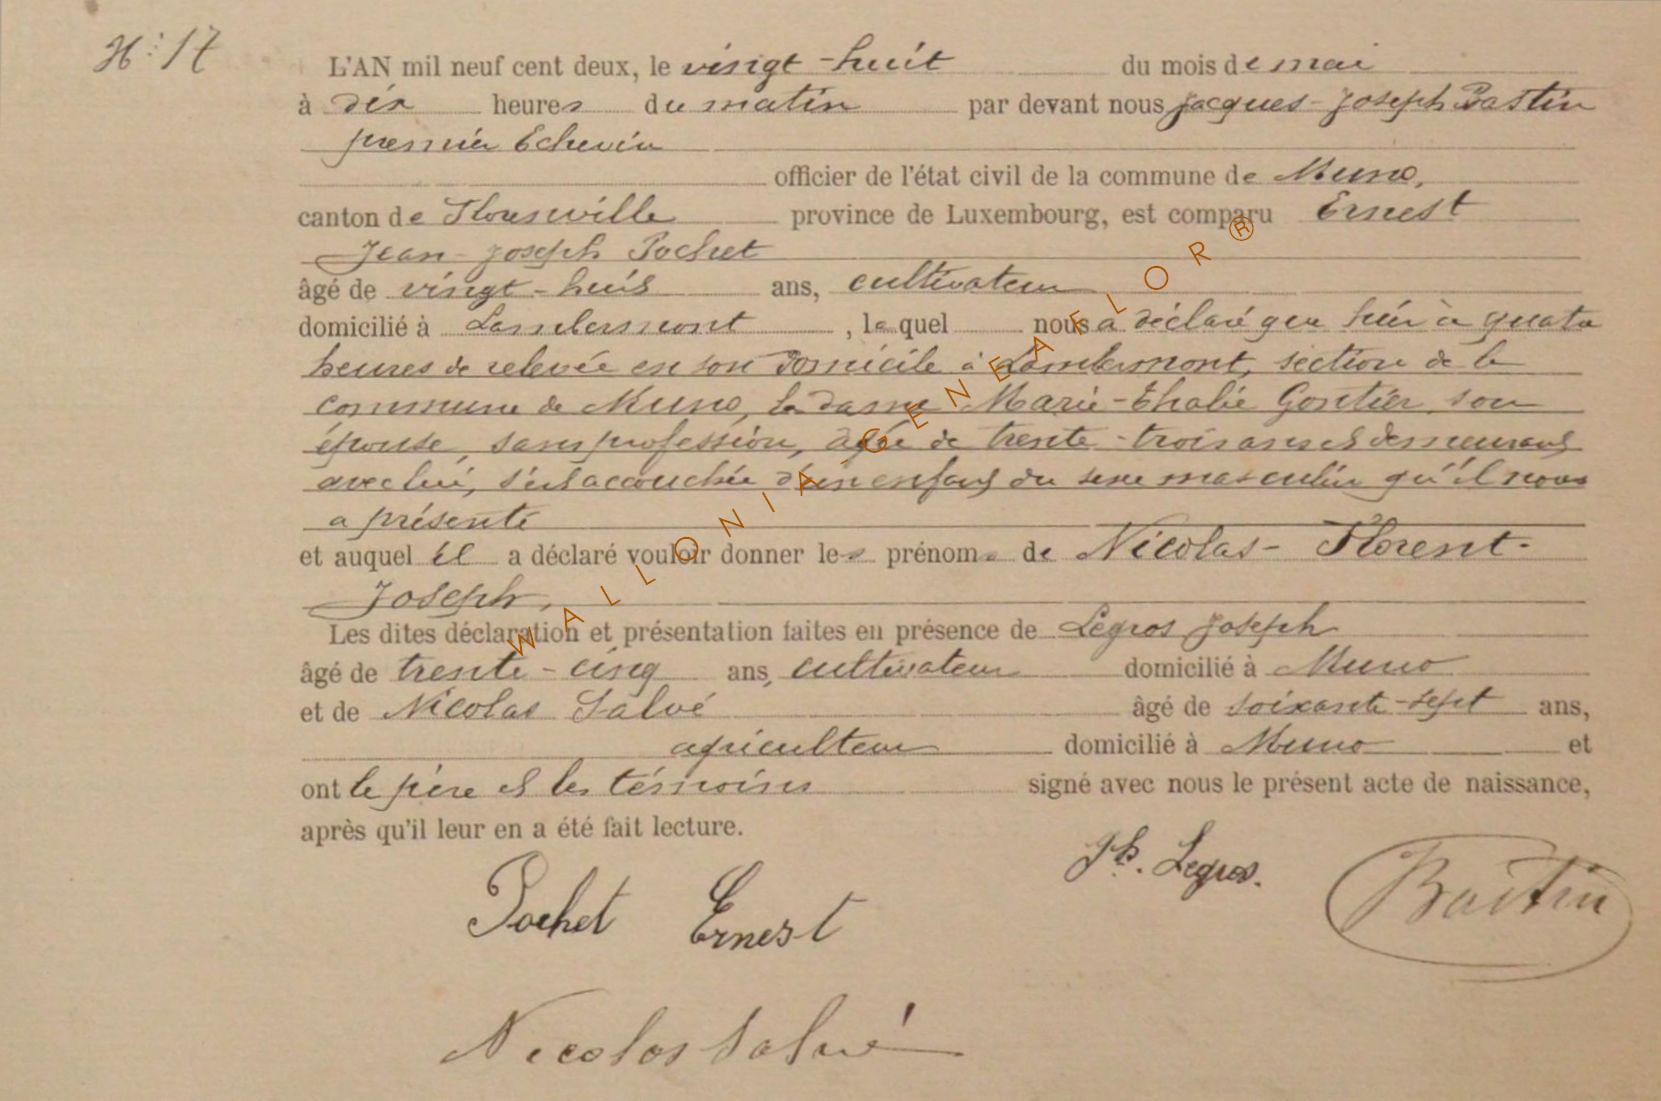 N° 17
L'AN mil neuf cent deux, le vingt-huit du mois de mai
à dix heures du matin par devant nous Jacques-Joseph Bastin
premier Echevin
officier de l'état civil de la commune de Muno,
canton de Florenville province de Luxembourg, est comparu Ernest
Jean-Joseph Pochet
âgé de vingt-huit ans, cultivateur
domicilié à Lambermont, lequel nous a déclaré que hier à quatre
heures de relevée en son domicile à Lambermont, section de la
commune de Muno, la dame Marie-Thalie Gontier, son
épouse, sans profession, âgée de trente-trois ans et demeurant
avec lui, s'est accouchée d'un enfant du sexe masculin qu'il nous
a présenté
et auquel il a déclaré vouloir donner les prénoms de Nicolas-Florent-
Joseph,
Les dites déclaration et présentation faites en présence de Legros Joseph
âgé de trente-cinq ans, cultivateur domicilié à Muno
et de Nicolas Salvé âgé de soixante-sept ans,
agriculteur domicilié à Muno et
ont le père et les témoins signé avec nous le présent acte de naissance,
après qu'il leur en a été fait lecture.
Jh. Legros.
Bastin
Pochet Ernest
Nicolas Salvé
WALLONIA-GENEAFLOR®